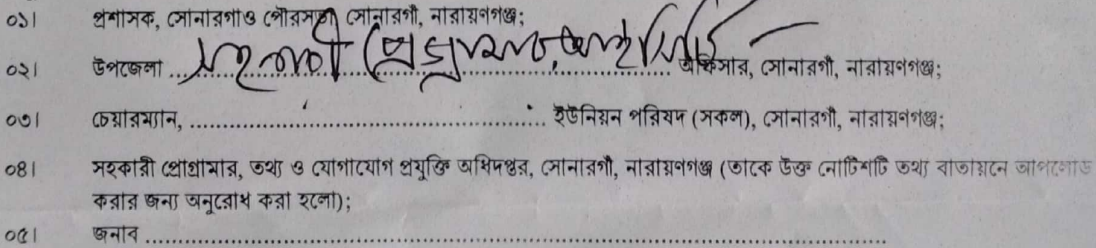 ০১। প্রশাসক, সোনারগাঁও পৌরসভা, সোনারগাঁ, নারায়ণগঞ্জ;
০২। উপজেলা ..সহকারী প্রোগ্রামার, আইসিটি.. অফিসার, সোনারগাঁ, নারায়ণগঞ্জ;
০৩। চেয়ারম্যান, ................................................ ইউনিয়ন পরিষদ (সকল), সোনারগাঁ, নারায়ণগঞ্জ;
০৪। সহকারী প্রোগ্রামার, তথ্য ও যোগাযোগ প্রযুক্তি অধিদপ্তর, সোনারগাঁ, নারায়ণগঞ্জ (তাকে উক্ত নোটিশটি তথ্য বাতায়নে আপলোড
করার জন্য অনুরোধ করা হলো);
০৫। জনাব ................................................................................................